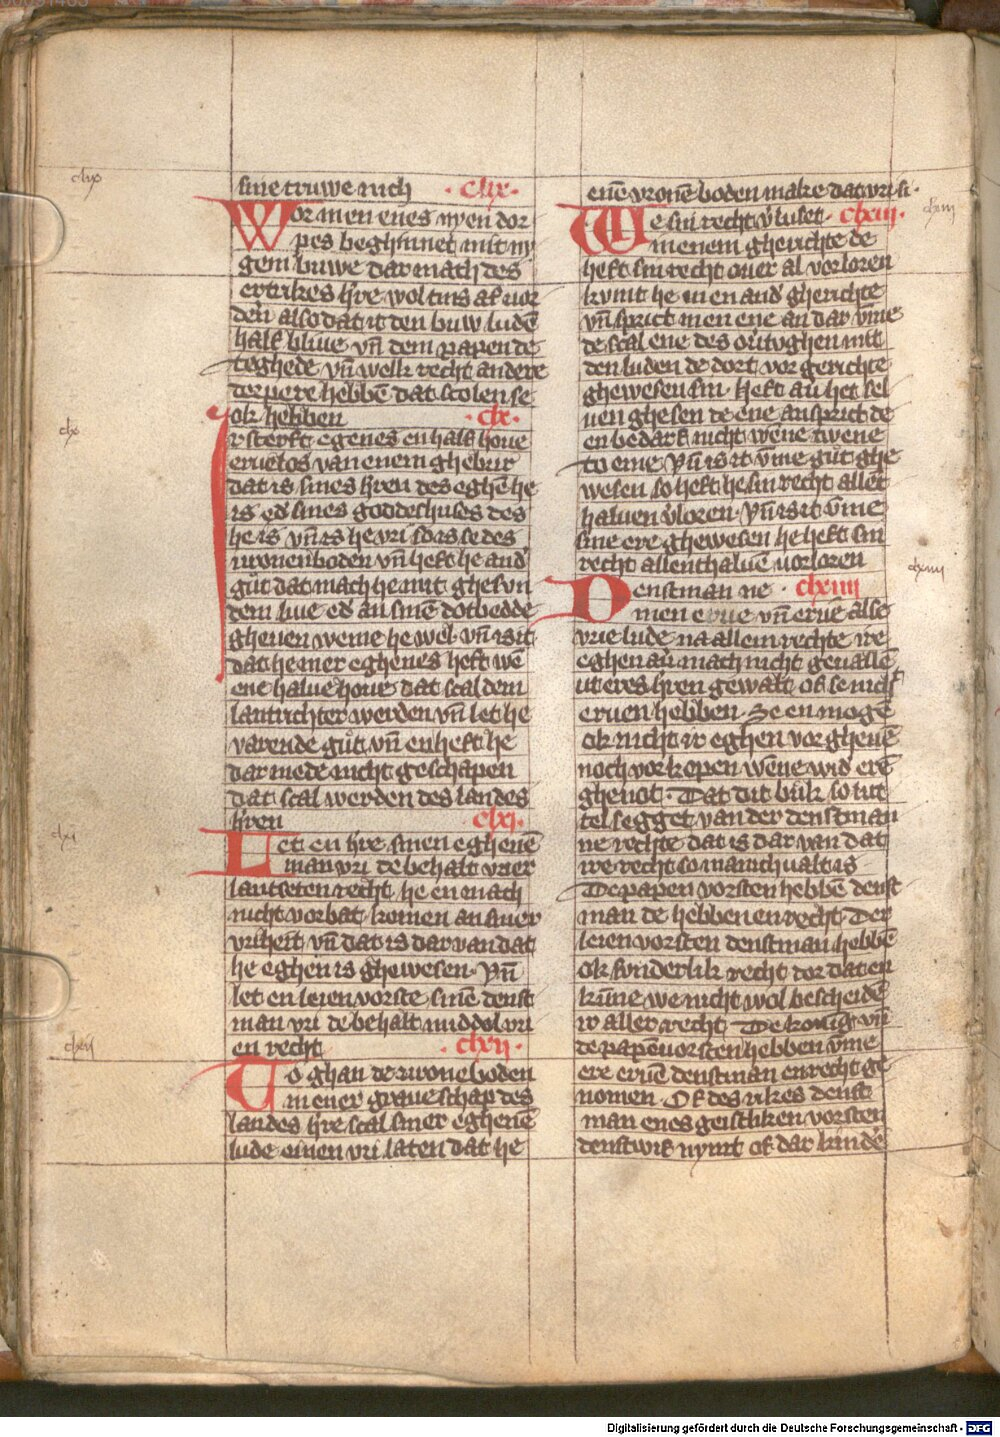 clix
sine truwe nich · clix ·
Wor men enes nyen dor
pes beghinnet mit ny
gem buwe dar mach des
ertrikes h're wol tins af uor
den also dat it den buw luden̄
half bliue vn̄ dem papen de
teghede vn̄ welk recht andere
dorpere hebbē dat scolen se
ok hebben · clx ·
Irsterft egenes en half houe
eruelos van enem ghebur
dat is sines h'ren des eghē he
is ed' sines goddeshuses des
he is vn̄ is he vri so is se des
vronenboden vn̄ heft he and'
gůt dat mach he mit ghesvn
dem liue ed' an sinē dotbedde
gheuen weme he wel vn̄ is it
dat he mer eghenes heft wē
ene halue houe dat scal dem
lantrichter werden vn̄ let he
varende gůt vn̄ en heft he
dar mede nicht geschapen
dat scal werden des landes
h'ren · clxi ·
Let en h're sinen eghenē
man vri de behalt vrier
lantseten recht he en mach
nicht vorbat komen an auer
vriheit vn̄ dat is dar van dat
he eghen is ghewesen · Vn̄
let en leien vorste sinē denst
man vri de behalt middol vri
en recht · clxii ·
To ghan de vrone boden
in ener graueschap des
landes h're scal siner eghenē
lude einen vri laten dat he
enē vronē boden make dat vri si ·
We sin recht v'luset · clxiii ·
in enem gherichte de
heft sin recht ouer al vorloren
kvmt he in en and' gherichte
vn̄ sprict men ene an dar vm̄e
de scal ene des ou'tvghen mit
den luden de dort vor gerichte
ghewesen sin · Heft au' het sel
uen ghesen de ene ansprict de
en bedarf nicht wēne twene
to eme Vn̄ is it vm̄e gůt ghe
wesen so heft he sin recht allent
haluen v'loren · Vn̄ is it vm̄e
sine ere ghewesen he heft sin
recht allenthaluē uorloren
Denstman ne · clxiiii
men erue vn̄ eruē alse
vrie lude na allem rechte ire
eghen au' mach nicht geuallē
ut eres h'ren gewalt of se nicht
eruen hebben · Se en mogē
ok nicht ir eghen vor gheuē
noch vorkopen wēne wid' erē
ghenot · Dat dit bůk so lut
tel segget van der denstman
ne rechte dat is dar van dat
ire recht so manichualt is
De papen vorsten hebbē denst
man de hebben en recht · Der
leien vorsten denstman hebbē
ok sunderlik recht dor dat en
kūne we nicht wol bescheidē
ir aller recht De konīg vn̄
de papē uorsten hebben vm̄e
ere eruē denstman en recht ge
nomen · Of des rikes denst
man enes geistliken vorsten
denstwif nymt of dar kindē
clx
clxi
clxii
clxiii
clxiiii
Digitalisierung gefördert durch die Deutsche Forschungsgemeinschaft - DFG